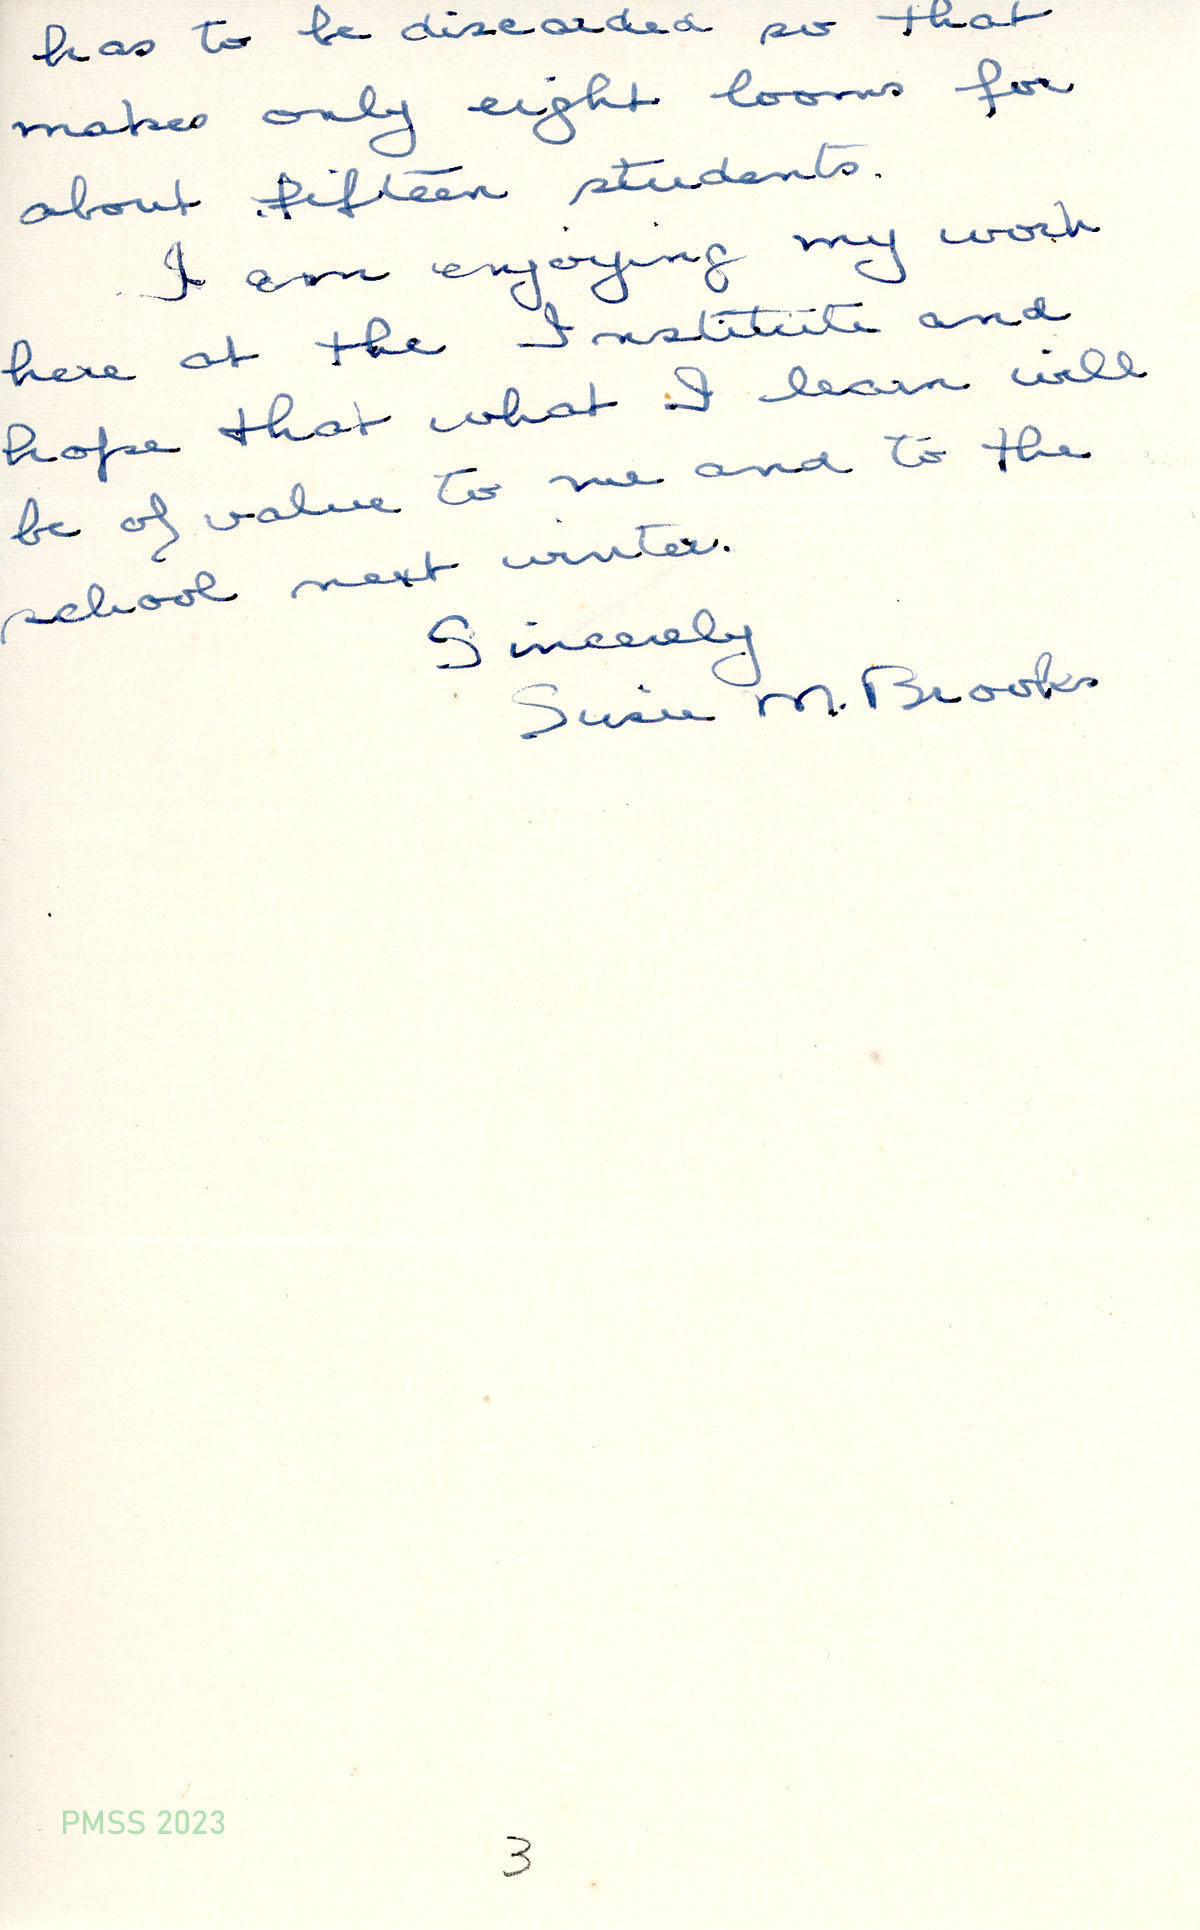 has to be discarded so that
makes only eight looms for
about fifteen students.
I am enjoying my work
here at the Institute and
hope that what I learn will
be of value to me and to the
school next winter.
Sincerely
Susie M. Brooks
PMSS 2023
3